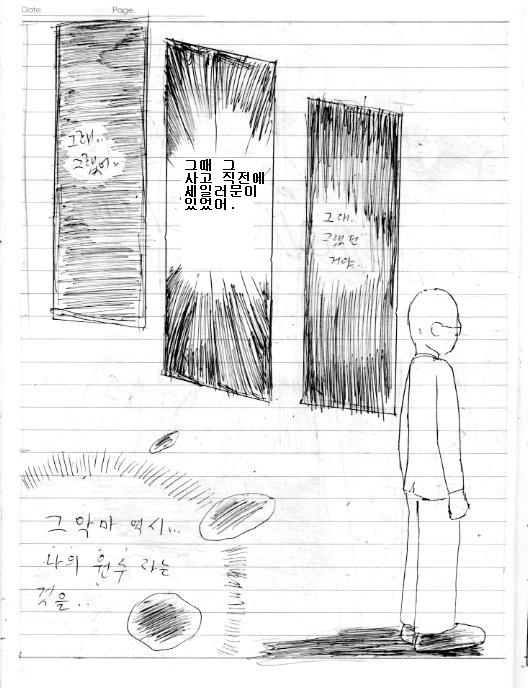 Date
Page
그래...
그랬어..
그때 그
사고 직전에
세일러문이
있었어.
그래.
그랬던
거야..
그 악마 역시...
나의 원수 라는
것을..